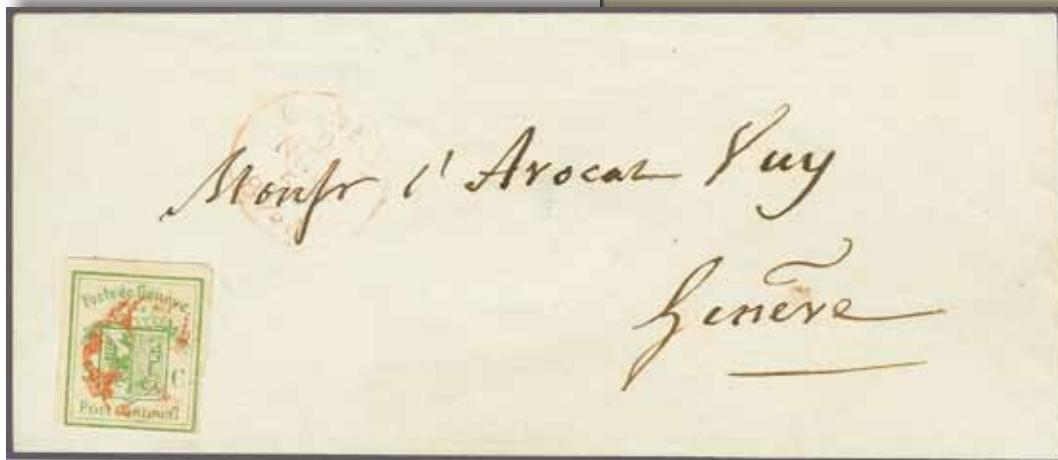 Monsr l'Avocat Vuy
Genève
Poste de Genève
Port Cantonal
C